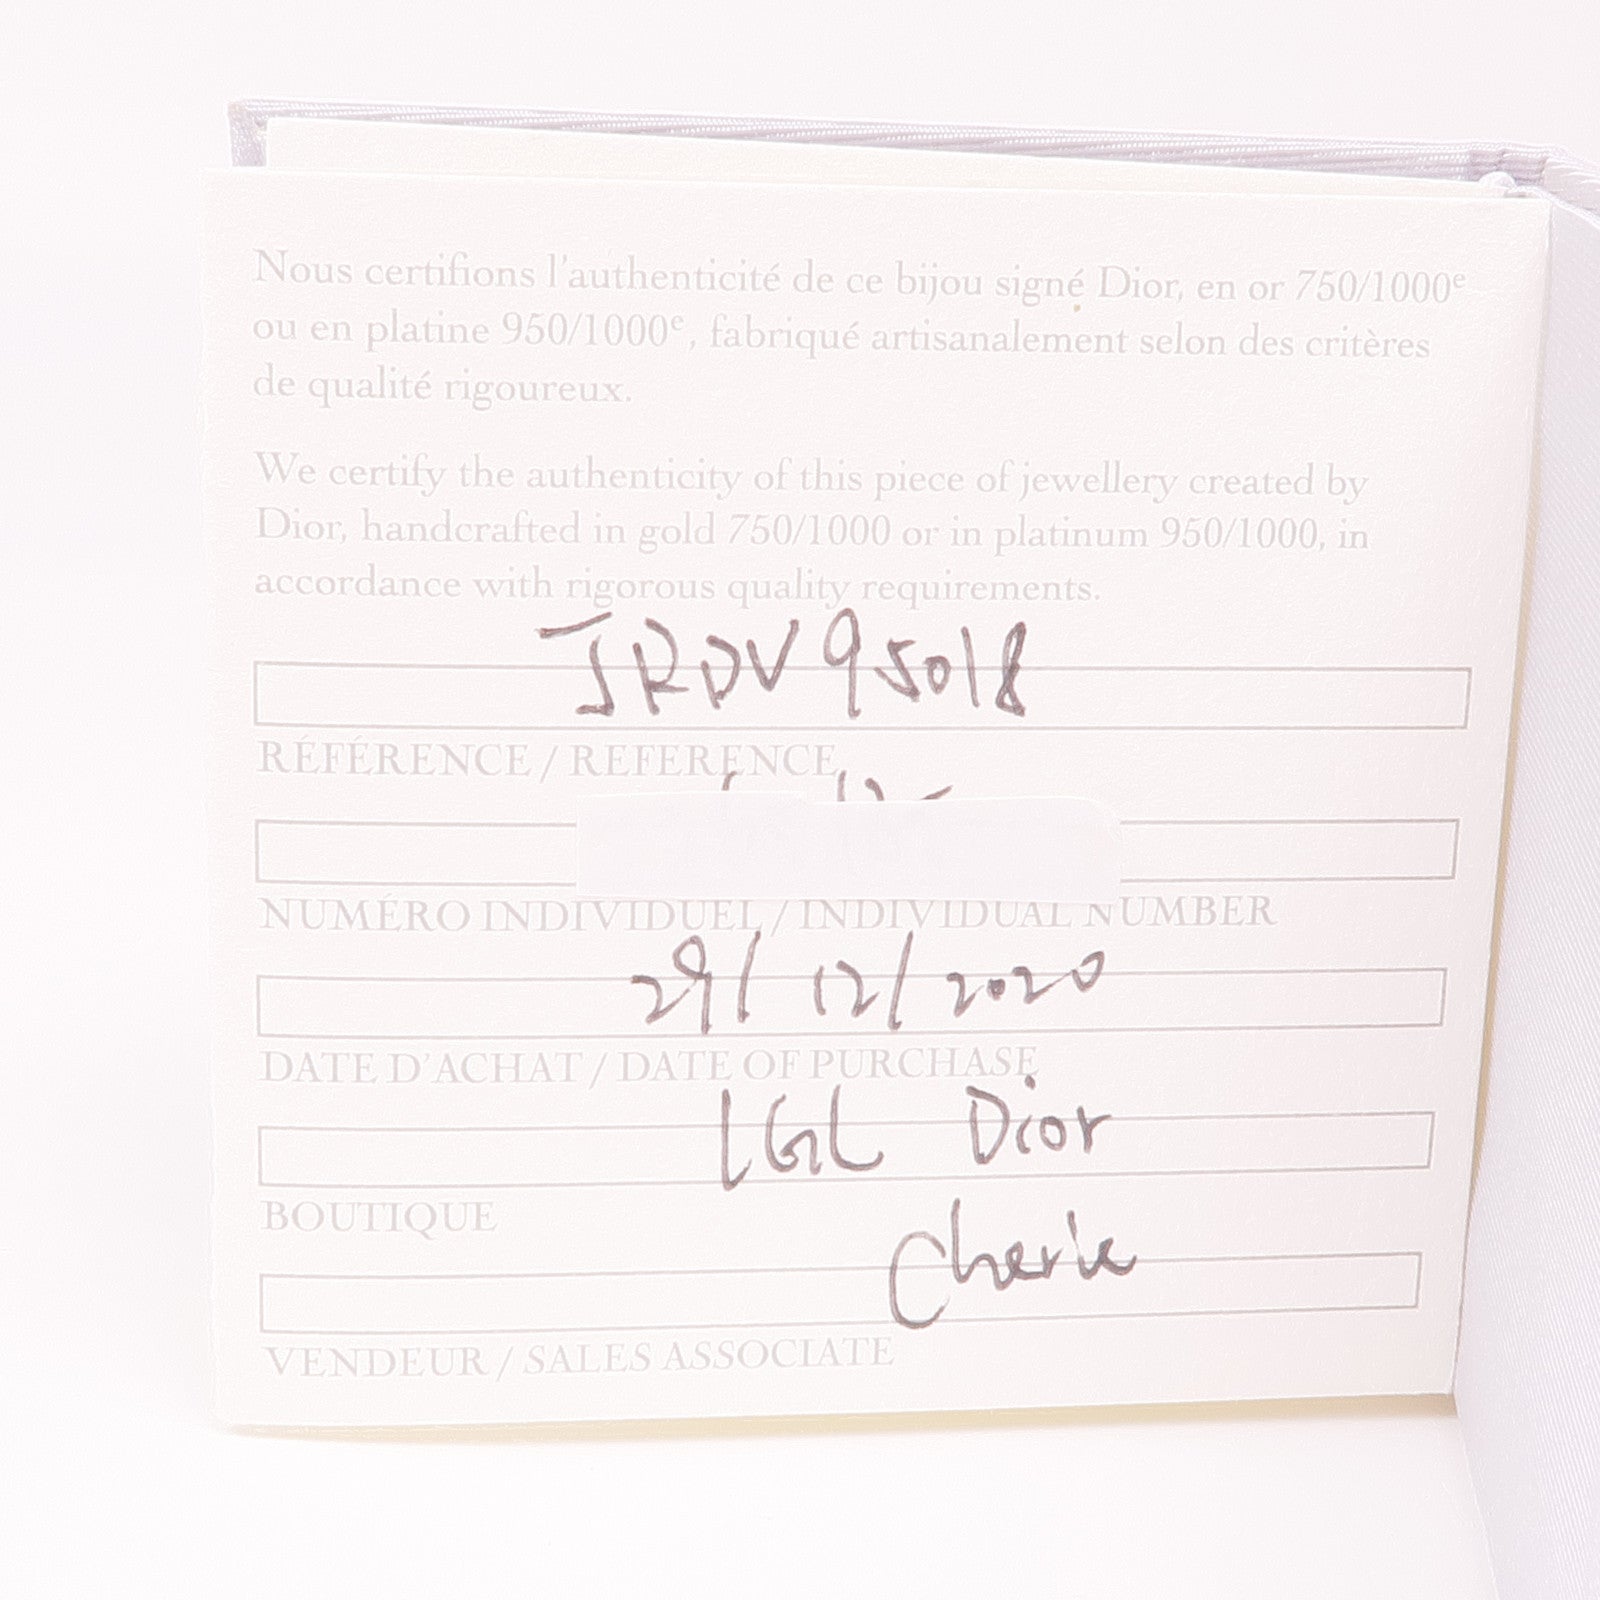 Nous certifions l'authenticité de ce bijou signé Dior, en or 750/1000e
ou en platine 950/1000e, fabriqué artisanalement selon des critères
de qualité rigoureux.
We certify the authenticity of this piece of jewellery created by
Dior, handcrafted in gold 750/1000 or in platinum 950/1000, in
accordance with rigorous quality requirements.
JRDV95018
RÉFÉRENCE / REFERENCE
NUMÉRO INDIVIDUEL / INDIVIDUAL NUMBER
29/12/2020
DATE D'ACHAT / DATE OF PURCHASE
LGL Dior
BOUTIQUE
Cherie
VENDEUR / SALES ASSOCIATE